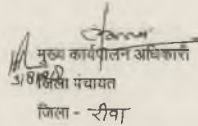 मुख्य कार्यपालन अधिकारी
जिला पंचायत
जिला - रीवा